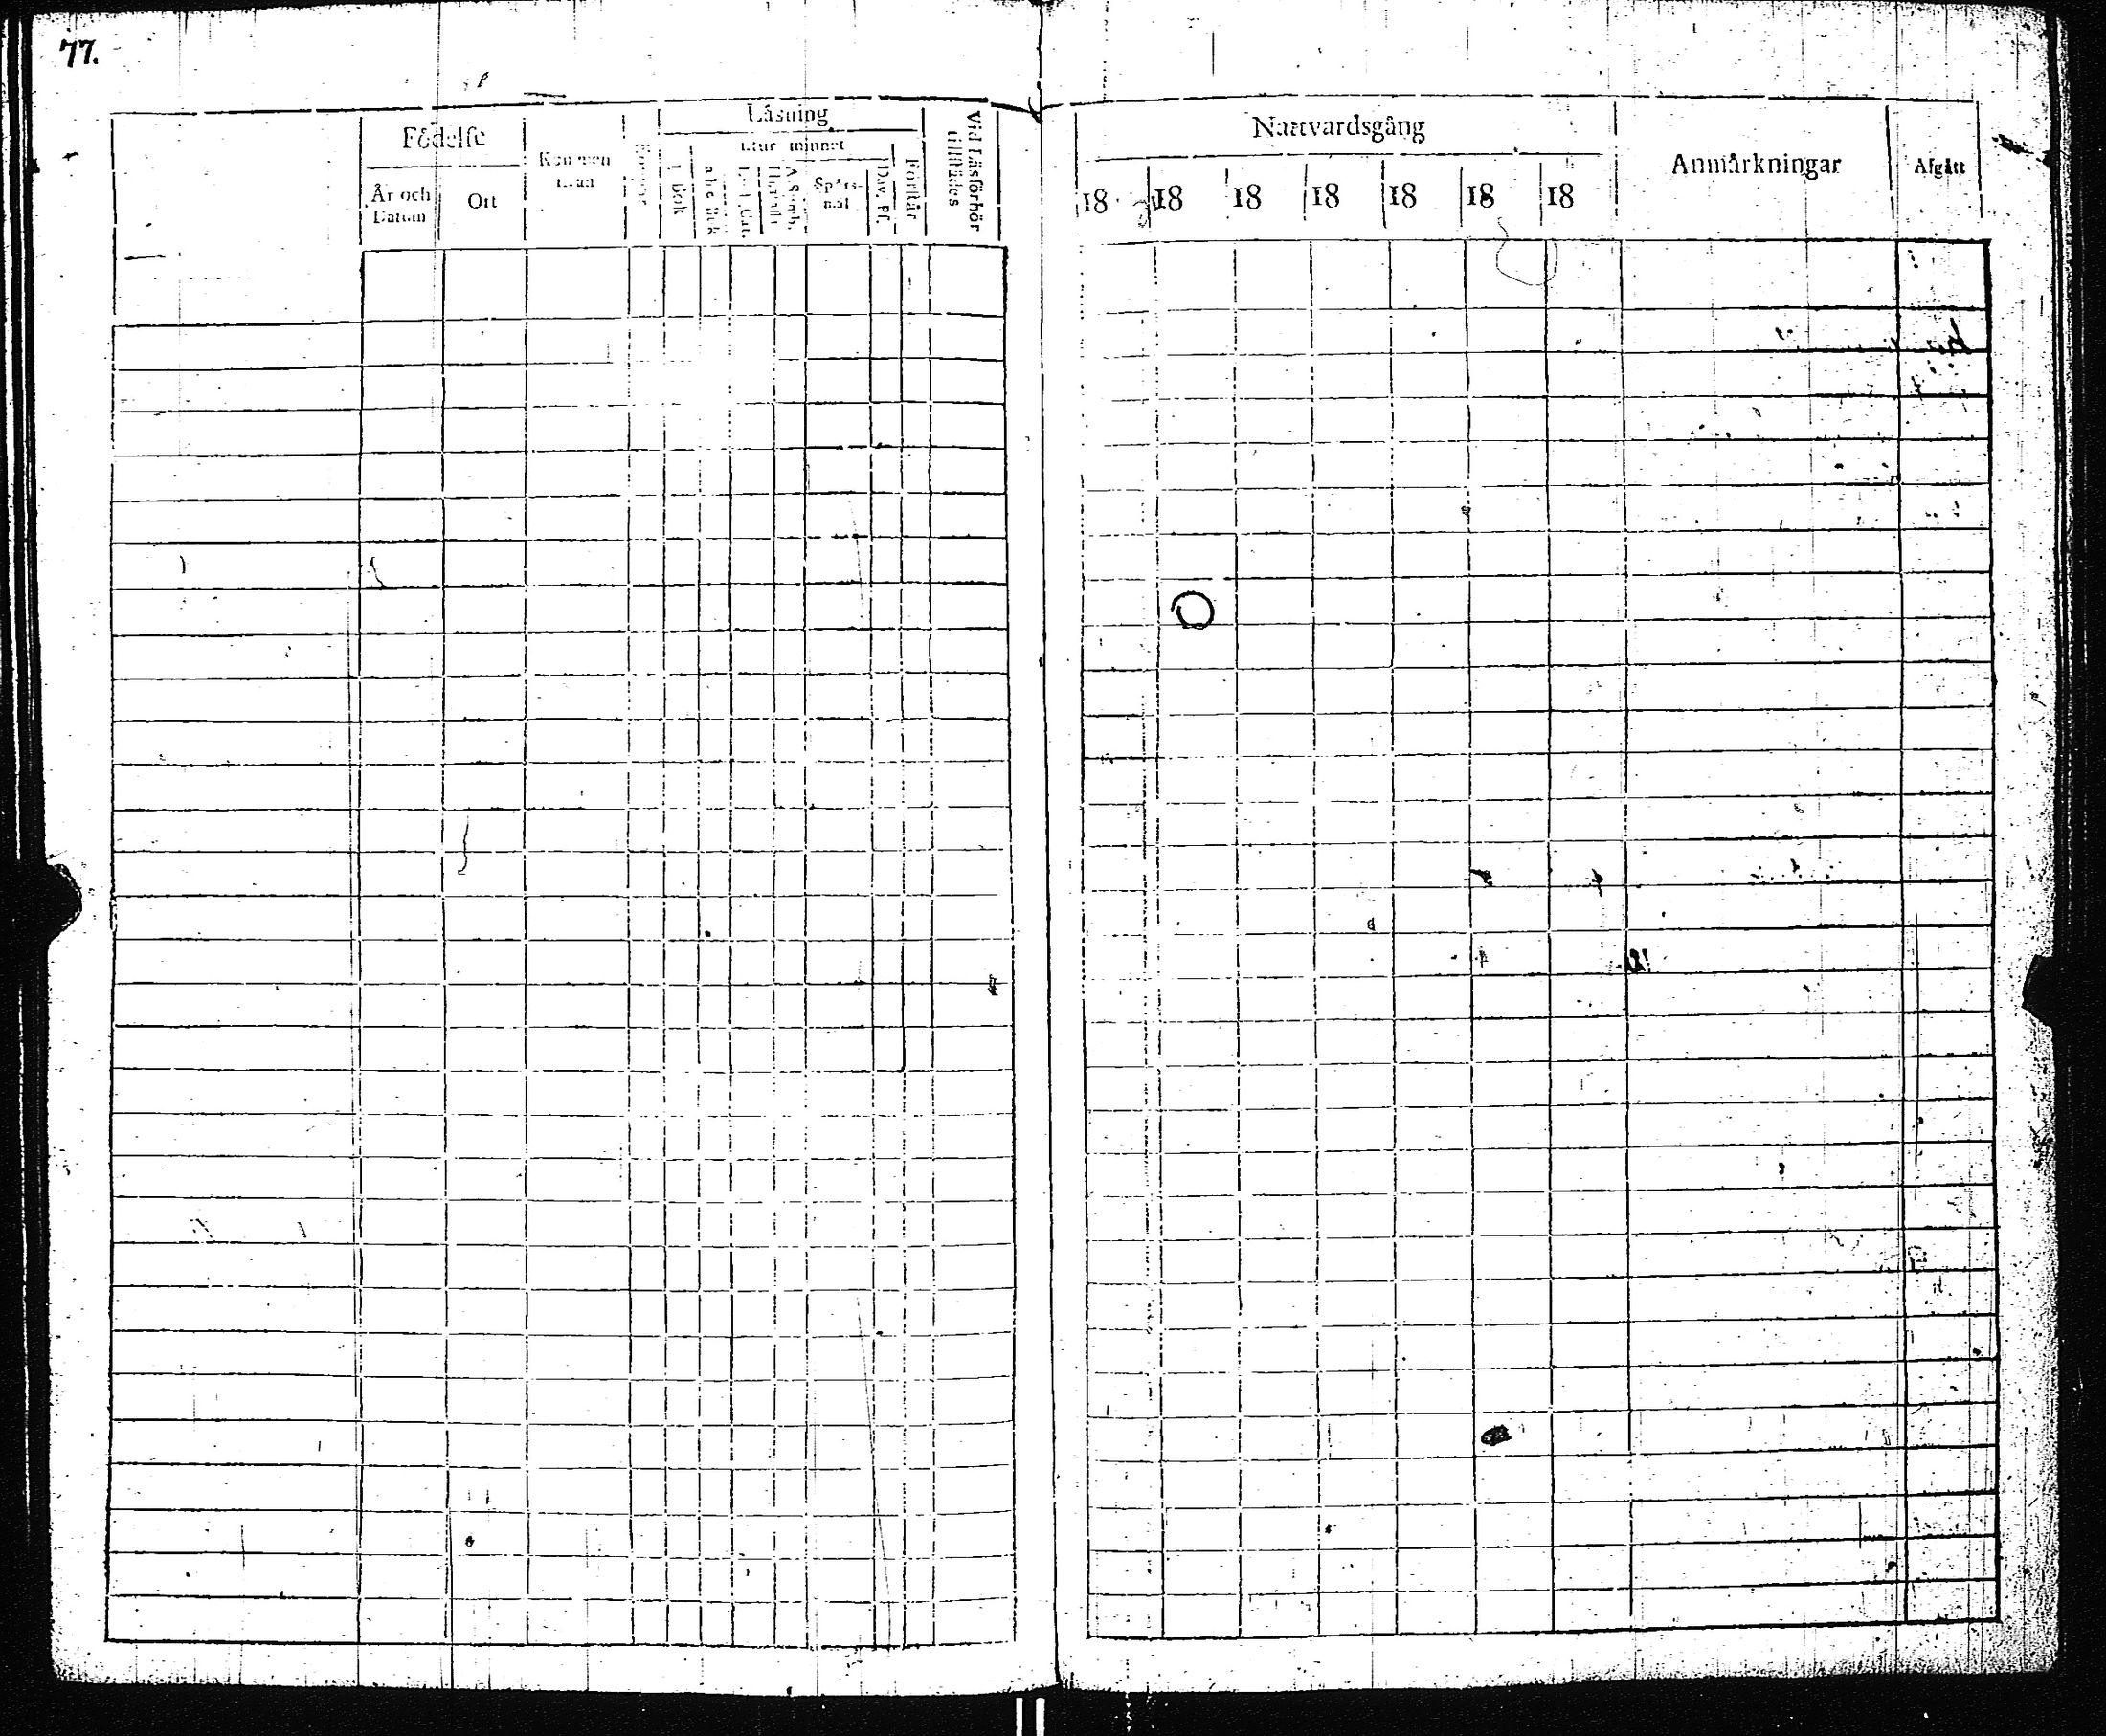 77.
Födelse
År och Datum
Ort
Kommen ifrån
Läsning
utur minnet
i Bok
Spörs-mål
Dav. Ps.
Förstår
Vid Läsförhör tillstädes
Nattvardsgång
18 18 18 18 18 18 18
Anmärkningar
Afgått